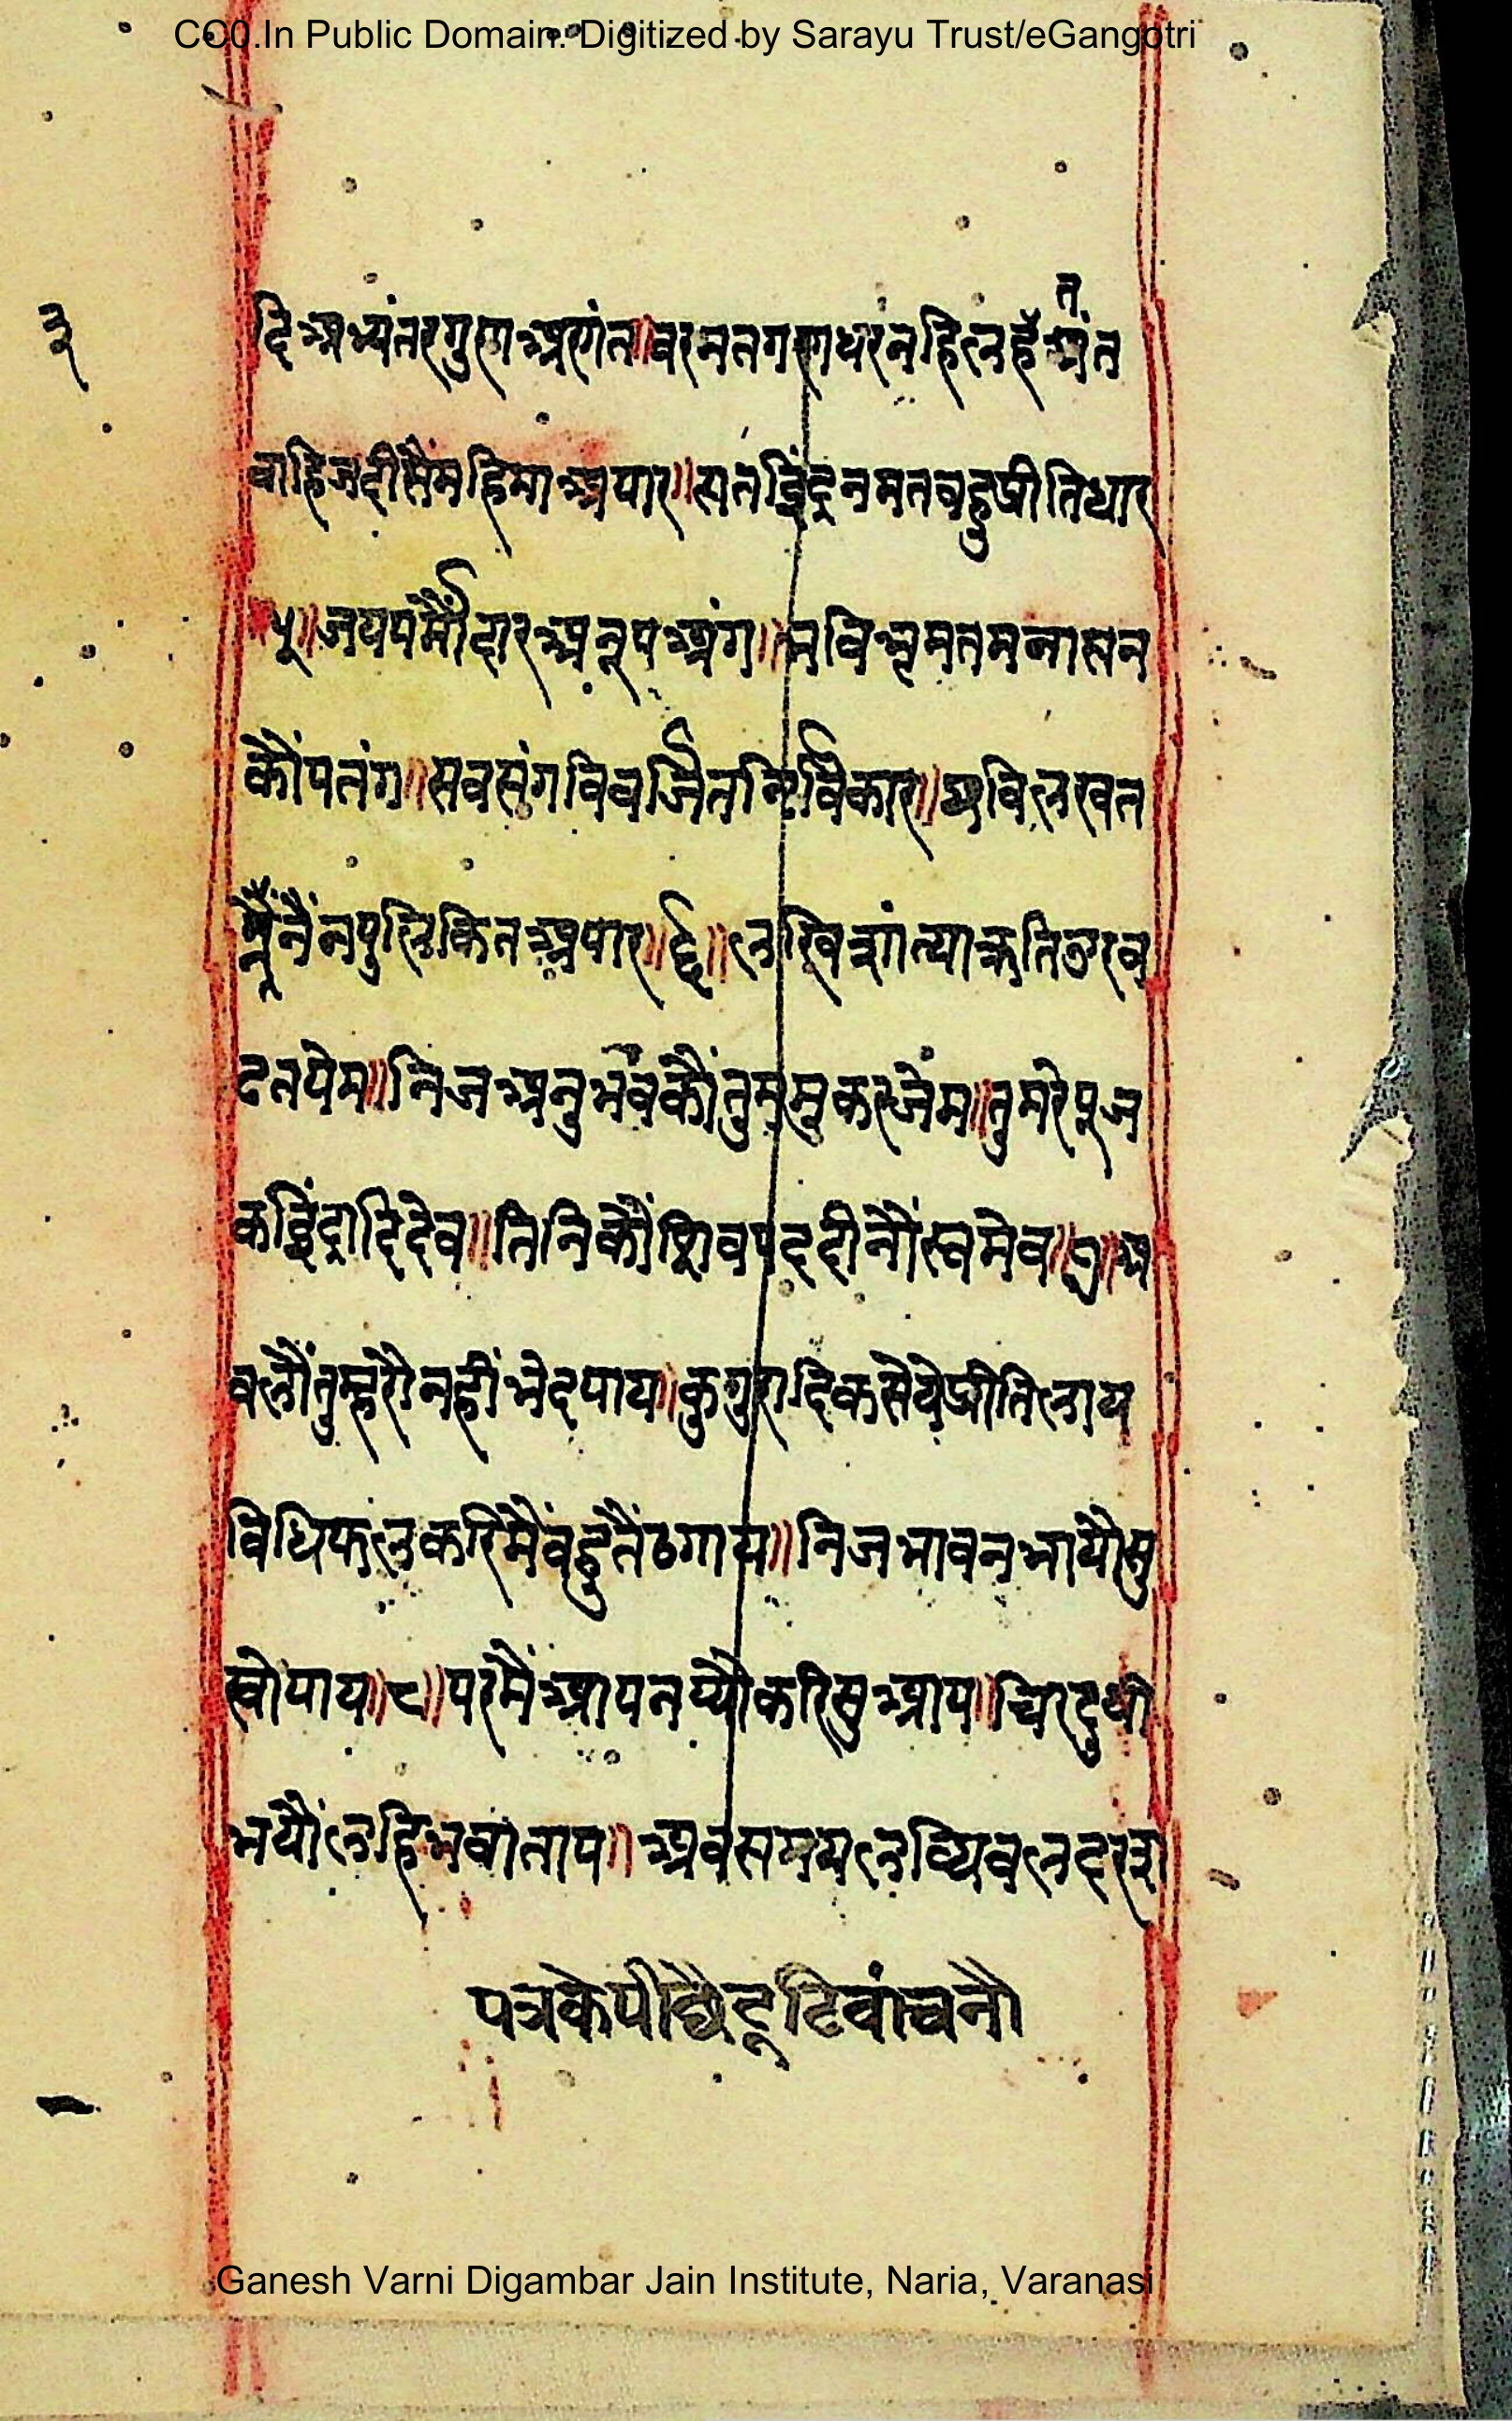 CC0.In Public Domain. Digitized by Sarayu Trust/eGangotri
३
दिअभ्यंतरगुणअरगंन॥वरननगणधरनहिलहैअंत
त
वाहिजदीसैमहिमाअपार॥सतइिंद्रनमतवहुप्रीतिधार
५॥जयपर्मौदारअनूपअंग॥भविभृमतमनासन
कौंपतंग॥सवसंगविवर्जितनिर्विकार॥छविलखत
नैंनपुलिकितअपार॥६॥लखिशांत्याकृतिउरव
ढतपेम॥निजअनुभवकौंतुममुकरजेंम॥तुमरेपूज
कइिंद्रादिदेव॥तिनिकौंशिवपददीनौंस्वमेव॥७॥अ
वलौंतुम्हरौनहींभेदपाय॥कुगुरादिकसेयेप्रीतिलाय
विधिफलकरिमैंवहुतैंठगाय॥निजभावनभायौसु
खोपाय॥८॥परमैंआपनप्यौकरिसुआप॥चिरदुषी
भयौंलहिभवाताप॥अवसममलव्धिवलदरशा
पत्रकेपीछैटूटिवांचनौ
Ganesh Varni Digambar Jain Institute, Naria, Varanasi